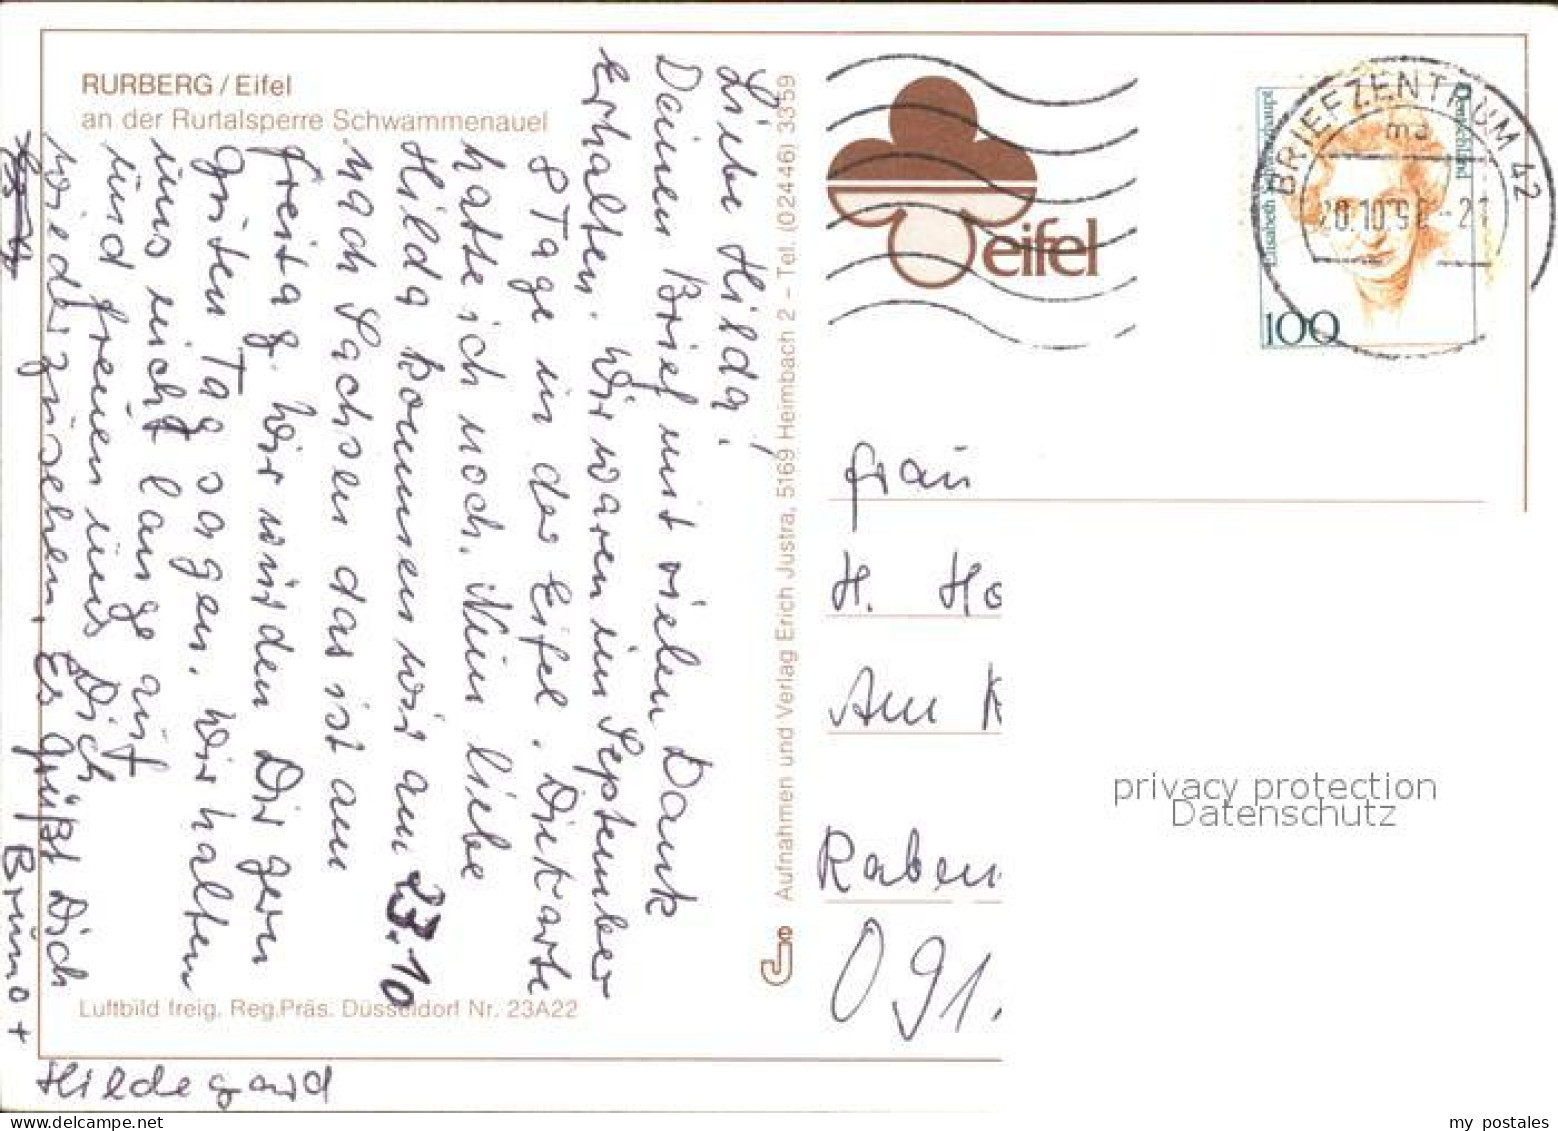 RURBERG / Eifel
an der Rurtalsperre Schwammenauel
Liebe Hilda!
Deinen Brief mit vielen Dank
Erhalten. Wir waren im September
8 Tage in der Eifel. Die Karte
hatte ich noch. Nun liebe
Hilda kommen wir am 23.10
nach Sachsen das ist am
freitag. Wir würden Dir gern
Guten Tag sagen. Wir halten
uns nicht lange auf
und freuen uns Dich
wieder zusehen. Es grüßt Dich
Bruno +
Hildegard
Luftbild freig. Reg.Präs. Düsseldorf Nr. 23A22
Aufnahmen und Verlag Erich Justra, 5169 Heimbach 2 – Tel. (02446) 3359
eifel
BRIEFZENTRUM 42
ma
20.10.98-21
Deutsche Bundespost
100
Frau
H. Ho
Am K
Raben
091
privacy protection
Datenschutz
my postales